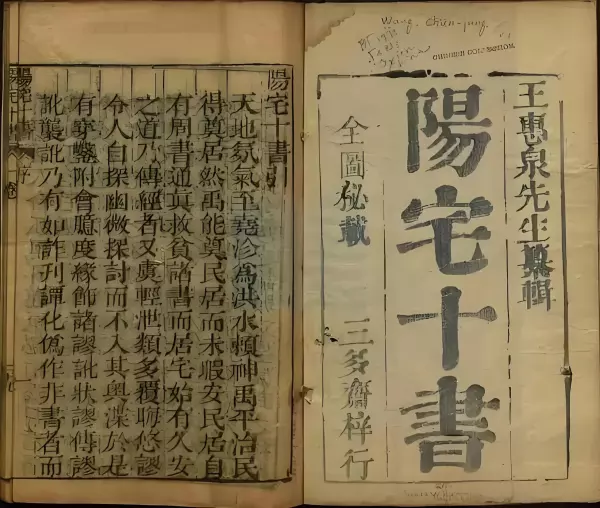 Wang, Chien-jung.
王惠泉先生纂輯
陽宅十書
全圖秘載
三多齋梓行
陽宅十書引
天地氛氣至堯沴為洪水賴神禹平治民
得奠居然禹能奠民居而未暇安民居自
有周書通眞救貧諸書而居宅始有久安
之道乃傳經者又虞輕泄類多覆晦悠謬
令人自探幽微探討而不入其奥渫於是
有穿鑿附會臆度緣飾諸謬訛狀謬傳謬
訛襲訛乃有如詐刋譚化僞作非書者而
陽宅十書